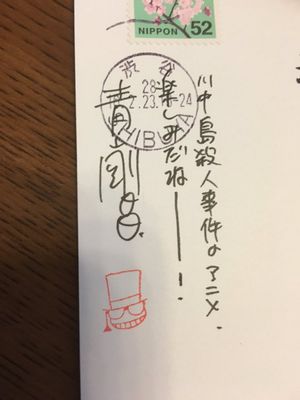 NIPPON 52
渋谷
28
2.23.
-24
SHIBUYA
川中島殺人事件のアニメ、
楽しみだねーー!
青山剛昌